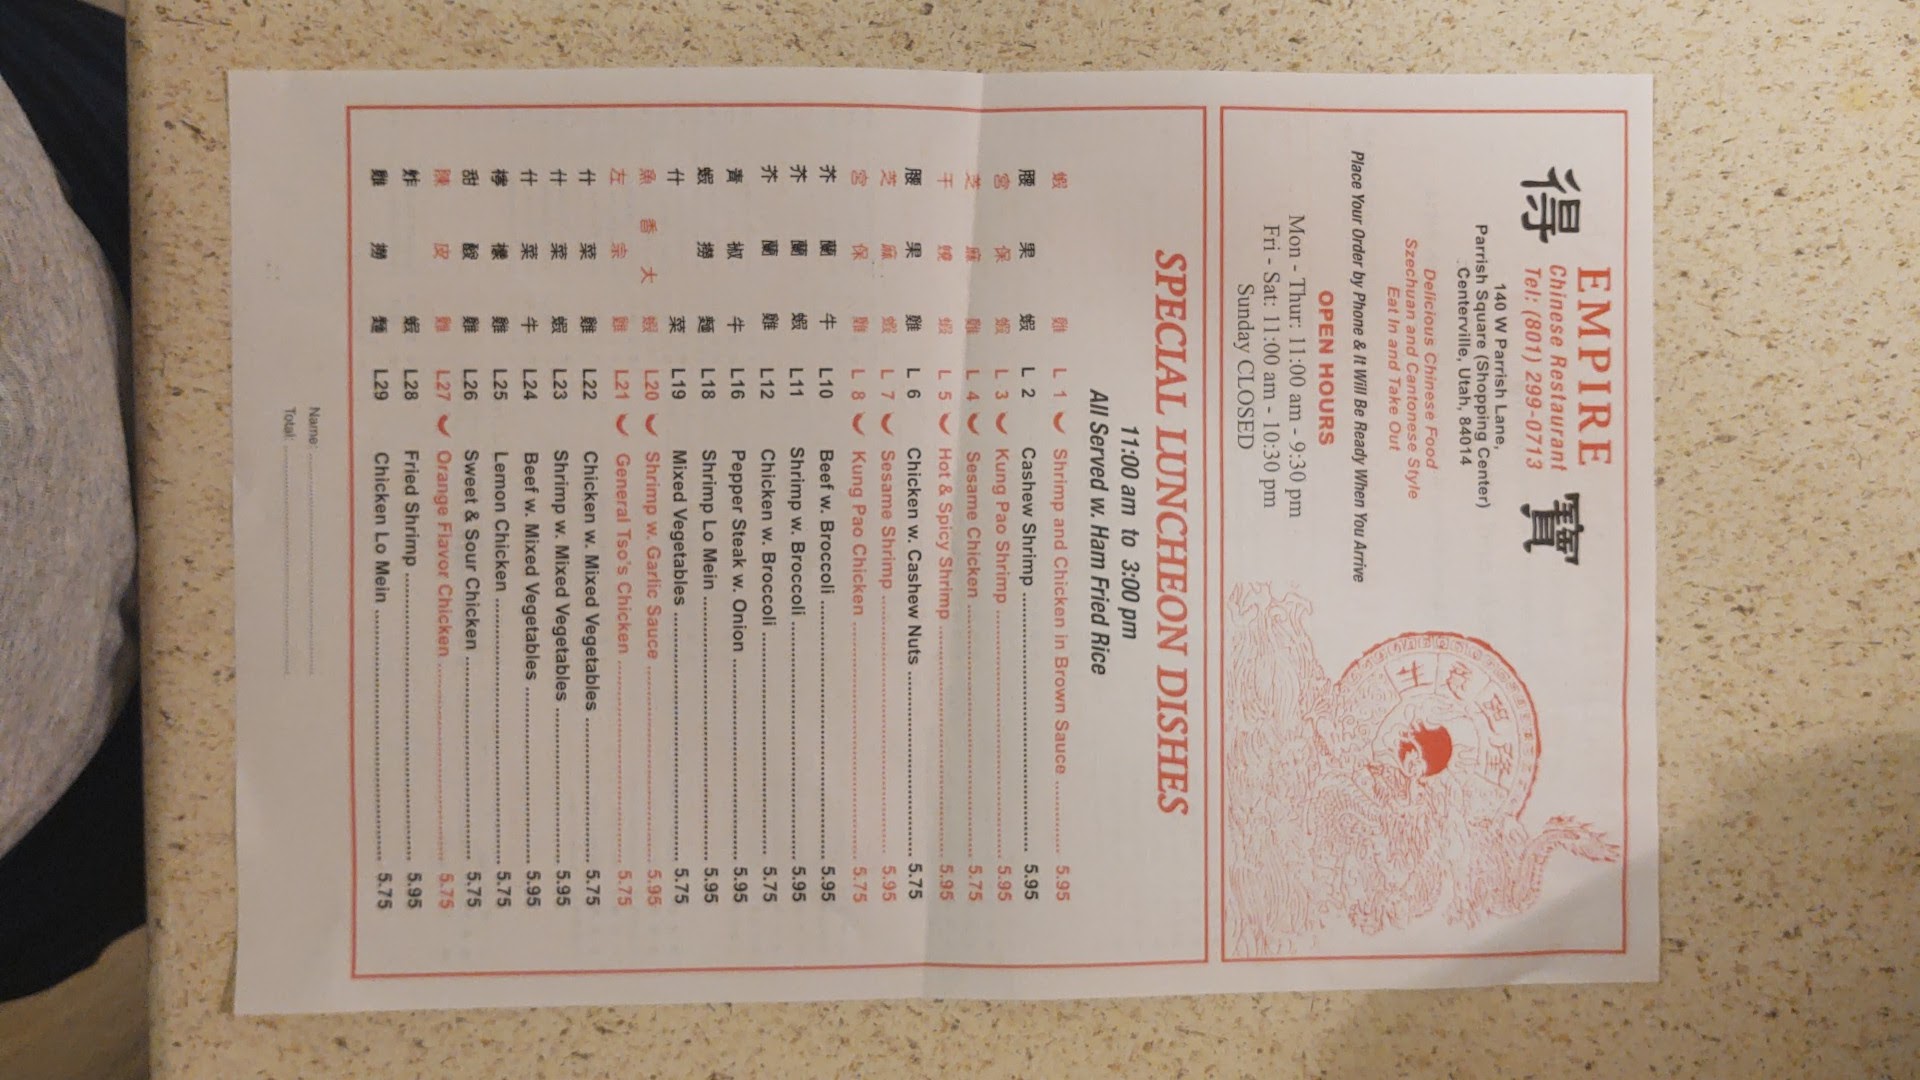 得 EMPIRE 寶
Chinese Restaurant
Tel: (801) 299-0713
140 W Parrish Lane,
Parrish Square (Shopping Center)
Centerville, Utah, 84014
Delicious Chinese Food
Szechuan and Cantonese Style
Eat In and Take Out
Place Your Order by Phone & It Will Be Ready When You Arrive
OPEN HOURS
Mon - Thur: 11:00 am - 9:30 pm
Fri - Sat: 11:00 am - 10:30 pm
Sunday CLOSED
SPECIAL LUNCHEON DISHES
11:00 am to 3:00 pm
All Served w. Ham Fried Rice
蝦 雞 L 1 Shrimp and Chicken in Brown Sauce 5.95
腰果蝦 L 2 Cashew Shrimp 5.95
宮保蝦 L 3 Kung Pao Shrimp 5.95
芝麻雞 L 4 Sesame Chicken 5.75
干燒蝦 L 5 Hot & Spicy Shrimp 5.95
腰果雞 L 6 Chicken w. Cashew Nuts 5.75
芝麻蝦 L 7 Sesame Shrimp 5.95
宮保雞 L 8 Kung Pao Chicken 5.75
芥蘭牛 L10 Beef w. Broccoli 5.95
芥蘭蝦 L11 Shrimp w. Broccoli 5.95
芥蘭雞 L12 Chicken w. Broccoli 5.75
青椒牛 L16 Pepper Steak w. Onion 5.95
蝦撈麵 L18 Shrimp Lo Mein 5.95
什 菜 L19 Mixed Vegetables 5.75
魚香大蝦 L20 Shrimp w. Garlic Sauce 5.95
左宗雞 L21 General Tso's Chicken 5.75
什菜雞 L22 Chicken w. Mixed Vegetables 5.75
什菜蝦 L23 Shrimp w. Mixed Vegetables 5.95
什菜牛 L24 Beef w. Mixed Vegetables 5.95
檸檬雞 L25 Lemon Chicken 5.75
甜酸雞 L26 Sweet & Sour Chicken 5.75
陳皮雞 L27 Orange Flavor Chicken 5.75
炸 蝦 L28 Fried Shrimp 5.95
雞撈麵 L29 Chicken Lo Mein 5.75
Name:
Total: